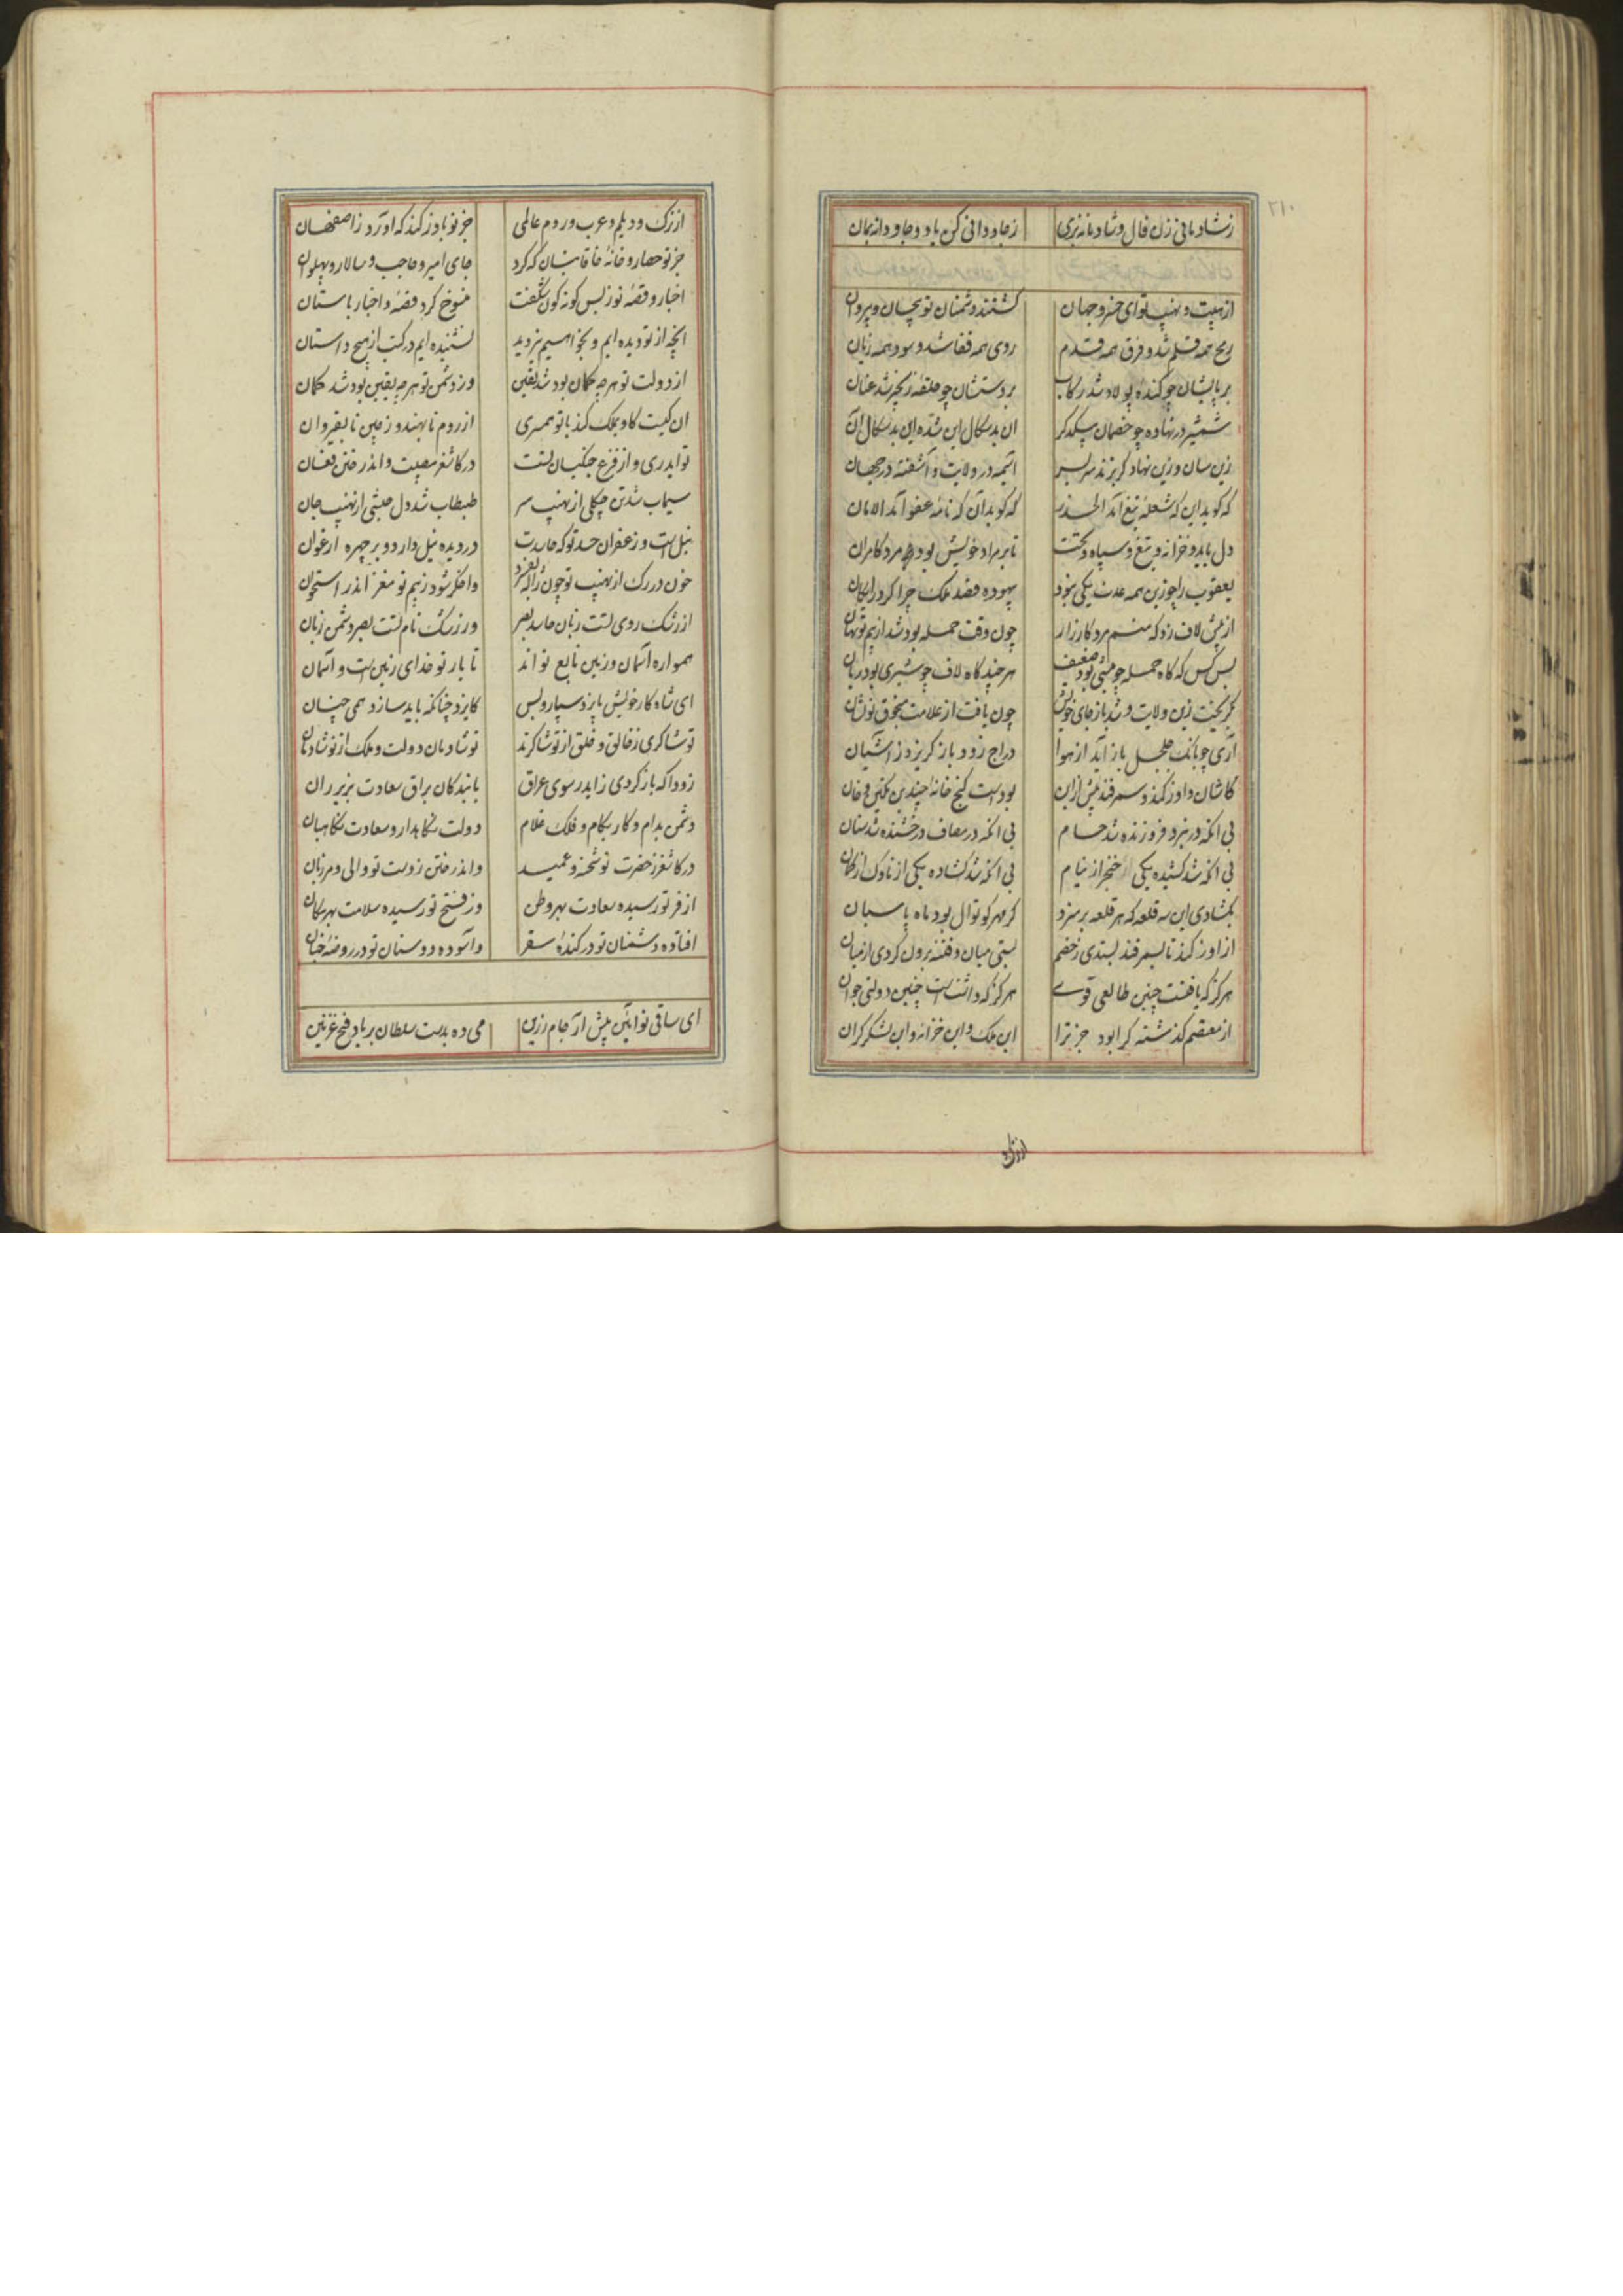 ۲۱۰
زشادمانی زن فال و شادمانه بزی زجاودانی کن یاد و جاودانه بمان
از هیبت و نهیب تو ای خسرو جهان گشتند دشمنان تو پیچان و
رمح همه قلم شد و فرق همه قدم روی همه قفا شد و سود همه زیان
بر پایشان چو کنده پولاد شد رکاب بر دستشان چو حلقه زنجیر شد عنان
شمشیر در نهاده چو خصمان یکدگر ان بدسکال این شده این بدسکال آن
زین سان و زین نهاد گریزند سر بسر آسیمه در ولایت و آشفته در جهان
که کوید این که شعله تیغ آمد الحذر که کوید آن که نامه عفو آمد الامان
دل باید و خزانه و تیغ و سپاه و بخت تا بر مراد خویش بود مرد کامران
یعقوب را چو زین همه عدت یکی نبود بیهوده قصد ملک چرا کرد رایکان
از پیش لاف زد که منم مرد کارزار چون وقت حمله بود شد از بیم تو نهان
بس کس که کاه حمله چو میشی بود ضعیف هر چند کاه لاف چو شیری بود ژیان
بگریخت زین ولایت و شد باز جای خویش چون یافت از علامت منجوق تو نشان
آری چو بانک جلجل باز آید از هوا دراج زود باز گریزد ز آشیان
کاشان و اوزکند و سمرقند پیش ازین بودست گنج خانه چندین تکین و خان
بی انکه در نبرد فروزنده شد حسام بی انکه در مصاف درخشنده شد سنان
بی انکه شد کشیده یکی خنجر از نیام بی انکه شد گشاده یکی ناوک از کمان
بگشادی این سه قلعه که هر قلعه بر سزد گر مهر کوتوال بود ماه پاسبان
از اوزکند تا بسمرقند بستدی ز خصم بستی میان و فتنه برون کردی از میان
هرگز که یافتست چنین طالعی قوی هرگز که داشتست چنین دولتی جوان
از معتصم گذشته کرا بود جز ترا این ملک و این خزانه و این لشکر گران
از ترک
از ترک و دیلم و عرب و روم عالمی جز تو باوزکند که آورد زاصفهان
جز تو حصار و خانه خاقانیان که کرد جای امیر و حاجب و سالار و پهلوان
اخبار و قصه تو ز بس گونه گون شگفت منسوخ کرد قصه و اخبار باستان
آنچه از تو دیده ایم و بخواهیم نیز دید نشنیده ایم در کتب از هیچ داستان
از دولت تو هرچه گمان بود شد یقین وز دشمن تو هرچه یقین بود شد گمان
ان کیست کاو بملک کند با تو همسری از روم تا بهند و ز چین تا بقیروان
تو ایدری و از فزع جنگیان تست در کاشغر مصیبت و اندر ختن فغان
سیماب شد تن چکلی از نهیب سر طبطاب شد دل حبشی از نهیب جان
نیل است و زعفران حسد تو که حاسدت در دیده نیل دارد و بر چهره ارغوان
خون در رک از نهیب تو چون ژاله بفسرد واخگر شود ز بیم تو مغز اندر استخوان
از رشک روی تست زبان حاسد بصر وز رشک نام تست بصر دشمن زبان
همواره آسمان و زمین تابع تو اند تا یار تو خدای زمین است و آسمان
ای شاه کار خویش بایزد سپار و بس کایزد چنانکه باید سازد همی چنان
تو شاکری ز خالق و خلق از تو شاکرند تو شادمان بدولت و ملک از تو شادمان
زودا که باز گردی زایدر سوی عراق با بندگان براق سعادت بزیر ران
دشمن بدام و کار بکام و فلک غلام دولت نگاهدار و سعادت نگاهبان
در کاشغر ز حضرت تو شحنه و عمید واندر ختن ز دست تو والی و مرزبان
از فر تو رسیده سعادت بهر وطن وز فتح تو رسیده سلامت بهر مکان
افتاده دشمنان تو در کنده سقر وآسوده دوستان تو در روضه جنان
ای ساقی نوآیین پیش آر جام زرین می ده بدست سلطان بر یاد فتح غزنین